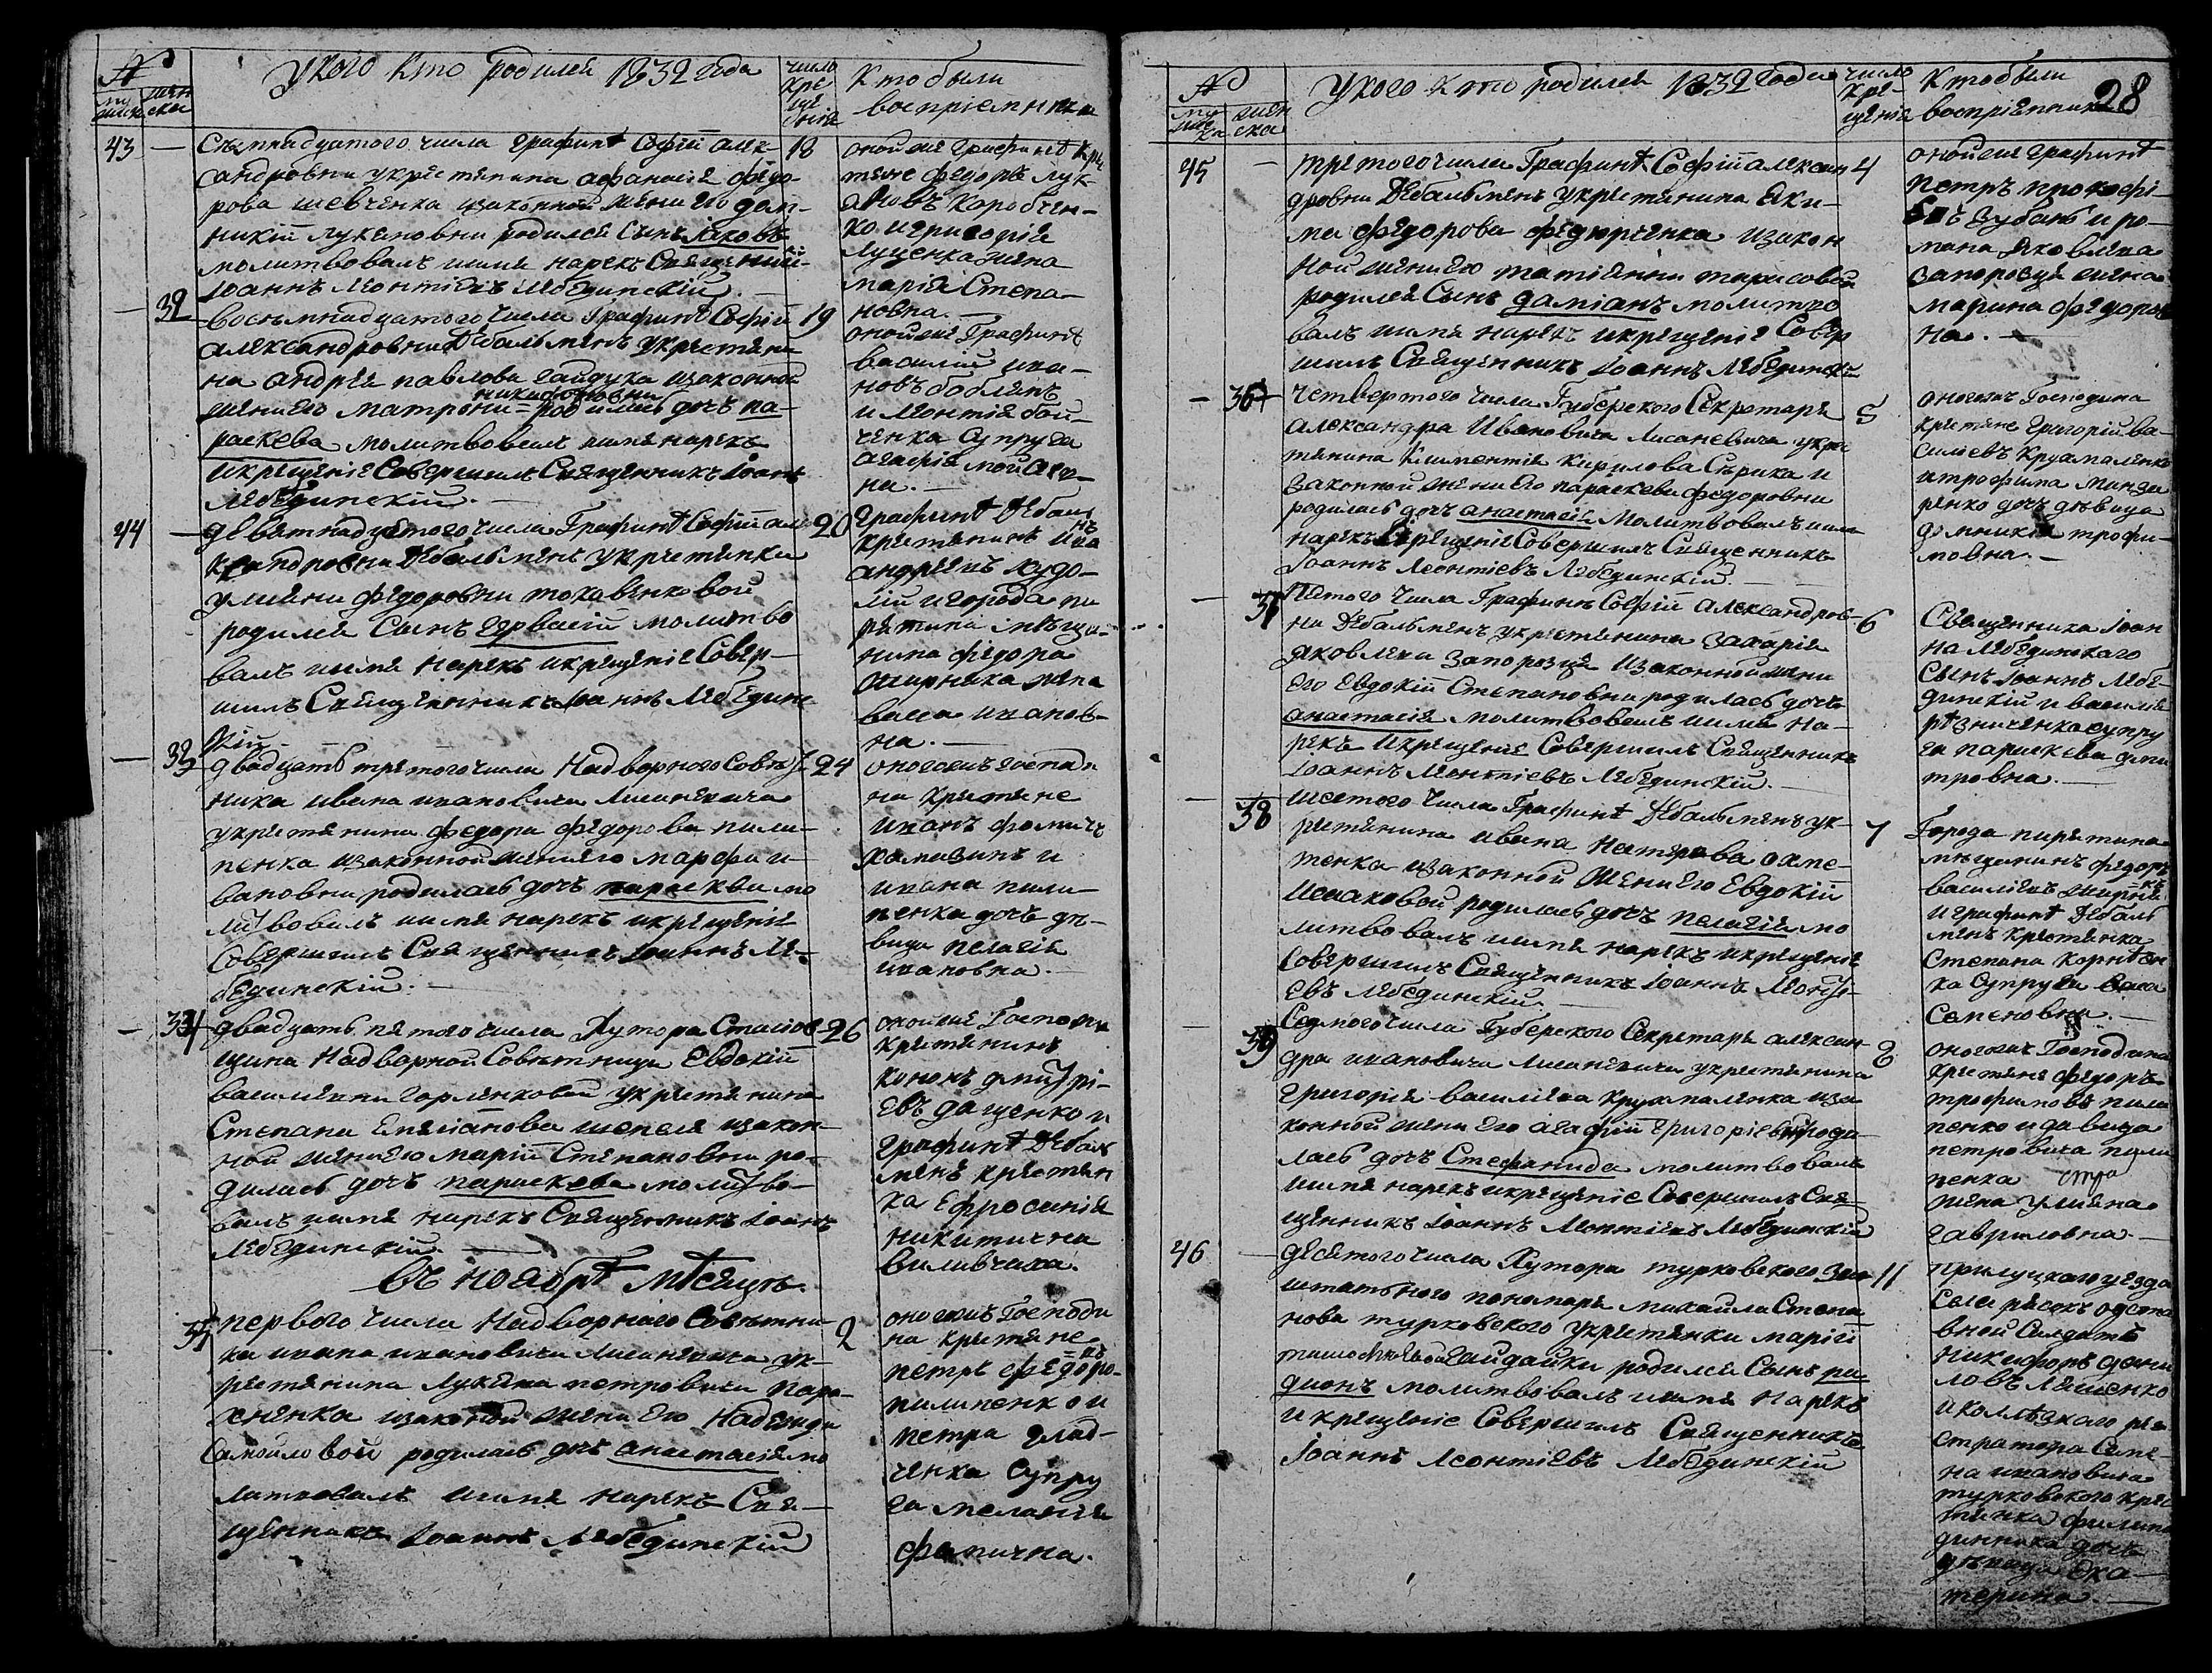 №
му
жеска
жен
ска
У кого кто родился 1832 года
число
кре
ще
ния
Кто были
восприемники
43 — Семнадцатого числа Графинѣ Софіи алек- 18
сандровны у крестянина афанасія фёдо-
рова шевченка и законной жени его дом-
никіи лукяновны родился Сынъ Іаковъ
молитвовалъ имя нарекъ Священникъ
Іоаннъ Леонтіевъ Лебединскій
оной же Графинѣ кре
стяне федоръ лук-
яновъ коробчен-
ко и григорія
луценка жена
марія Степа-
новна.
— 32 восьмнадцатого числа Графинѣ Софіи 19
александровны Дебальменъ у крестяни
на андрея павлова гайдука и законной
жени его матрони никифоровни родилась дочь па-
раскева молитвовалъ имя нарекъ
и крещеніе Совершилъ Священникъ Іоаннъ
Лебединскій.
оной же Графинѣ
василій ива-
новъ бобляхъ
и леонтія бой-
ченка Супруга
агафія мойсеи-
на.
44 — девятнадцятого числа Графинѣ Софіи але 20
ксандровны Дебальменъ у крестянки
улияни федоровни токавенковой
родился Сынъ Гервасій молитво
валъ имя нарекъ и крещеніе Совер-
шилъ Священникъ Іоаннъ Лебединс
кій.
Графинѣ Дебаль
крестянинъ ива нъ
андреевъ худо-
лій и города пи
рятина мѣща-
нина федора
ожирника жена
васса иванов-
на.
— 33 двадцать третого числа Надворного Совѣт 24
ника ивана ивановича Лисаневича
у крестянина федора федорова пили-
пенка и законной жени его марфи и-
вановни родилась дочь параскева мо
литвовалъ имя нарекъ и крещеніе
Совершилъ Священникъ Іоаннъ Ле-
бединскій.
оного жъ господи
на крестяне
иванъ фомичъ
хамазинъ и
ивана пили-
пенка дочь дѣ-
вица пелагія
ивановна.
— 34 двадцать пятого числа Хутора Стасюв- 26
щина Надворной Совѣтници Евдокіи
васильевни горленковой у крестянина
Степана Емеліанова шепеля и закон-
ной жени его маріи Степановни ро-
дилась дочь параскева молитво-
валъ имя нарекъ Священникъ Іоаннъ
Лебединскій.
оной же Госпожи
крестянинъ
кононъ дмитрі-
евъ даценко и
графинѣ Дебаль
менъ крестян
ка Ефросинія
никитична
виливчаха.
въ ноябрѣ мѣсяцѣ.
35 первого числа Надворного Совѣтни 2
ка ивана ивановича Лисаневича у к-
рестянина Лукяна петровича пара-
хненка и законной жени его Надежди
Самойловой родилась дочь анастасія мо
литвовалъ имя нарекъ Свя-
щенникъ Іоаннъ Лебединскій
оного жъ Господи
на крестяне
петръ федоро въ
пилипенко и
петра глад-
ченка Супру
га меланія
фомична.
№
му
жес
ка
жен
ска
У кого кто родился 1832 года
число
кре-
щенія
Кто были
воспріемники
28
45 — третого числа Графинѣ Софіи алексан 4
дровни Дебальменъ у крестянина Яки-
ма федорова федюренка и закон
ной жени его татіянни тарасовой
родился Сынъ даміанъ молитво
валъ имя нарекъ и крещеніе Совер
шилъ Священникъ Іоаннъ Лебединскій
оной же графинѣ
петръ прокофі-
евъ зубань и ро-
мана яковлева
запорозця жена
марина федоров
на.
— 36 Четвертого числа Губерского Секретаря 5
александра Ивановича Лисаневича у крес
тянина Климентія кирилова Сърика и
законной жени его параскеви федоровни
родилась дочь анастасія молитвовалъ имя
нарекъ и крещеніе Совершилъ Священникъ
Іоаннъ Леонтіевъ Лебединскій.
оного жъ Господина
крестяне григорій ва-
силіевъ крухмаленко
и трофима
ренко дочь дѣвица
домникія трофи-
мовна.
— 37 Пятого числа Графинѣ Софіи александров- 6
на Дебальменъ у крестянина захарія
яковлева запорозця и законной жени
его Евдокіи Степановни родилась дочь
анастасія молитвовалъ имя на-
рекъ и крещеніе Совершилъ Священникъ
Іоаннъ Леонтіевъ Лебединскій.
Священника Іоан
на Лебединского
сынъ Іоаннъ Лебе-
динскій и василія
рѣзниченка супру
га параскева дми
тровна.
— 38 шестого числа Графинѣ Дебальменъ у к- 7
рестянина ивана
тенка и законной жени его Евдокіи
Исааковой родилась дочь пелагія мо
литвовалъ имя нарекъ и крещеніе
Совершилъ Священникъ Іоаннъ Леонті-
евъ Лебединскій.
Города пирятина
мѣщанинъ федоръ
василіевъ ожирни къ
и графинѣ Дебаль
менъ крестянка
Степана корнѣен
ка Супруга васса
Семеновна.
— 39 Седмого числа Губерского Секретаря алексан- 8
дра ивановича лисаневича у крестянина
григорія василіева крухмаленка и за
конной жени его агафіи григоріевни роди
лась дочь Стефанида молитвовалъ
имя нарекъ и крещеніе Совершилъ Свя-
щенникъ Іоаннъ Леонтіевъ Лебединскій
оного жъ Господина
крестяне федоръ
трофимовъ пили
пенко и давида
петровича пили
пенка сестра
жена улияна
гавриловна.
46 — десятого числа Хутора турковского За 11
штатного пономаря михайла Степа
нова турковского у крестянки маріи
тимофѣевой гайдайки родился Сынъ ра
дионъ молитвовалъ имя нарекъ
и крещеніе Совершилъ Священникъ
Іоаннъ Леонтіевъ Лебединскій
прилуцкого уезда
Села рясокъ одста
вной Салдатъ
никифоръ дани
ловъ ляшенко
и коллѣзкого ре
стратора Семе-
на ивановича
турковского крес
тянка филип
динника дочь
дѣвица Ека-
терина.